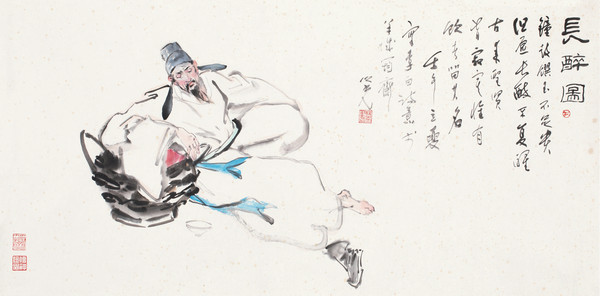 長醉圖
鐘鼓饌玉不足貴
但願長醉不復醒
古來聖賢
皆寂寞惟有
飲者留其名
壬午立夏
寫李白詩意於
羊城